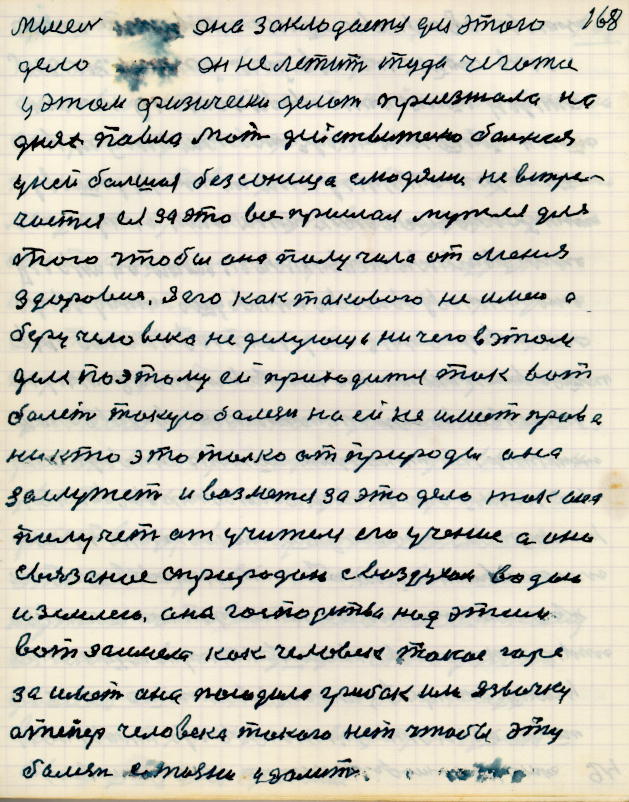 мысли она закладается для этого 168
дело он не летит туда чегота
у этом физически делат приезжала на
днях Павла Мат действительно балная
уней балшая безсоница слюдями не встре-
чается ей за это все прислал мужля для
этого чтобы она получила от меня
здоровия, я его как такового не имею а
беру человека не делующь ничего в этом
деле поэтому ей приходится так вот
балет такую балезн на ей не имеет права
никто это толко от природы она
заслужет и возмется за это дело так она
получет от учителя его учение а оно
связаное сприродои своздухом водою
и землею, она господства над этим
вот заимела как человек такое горе
за имет она породила грибок или язвочку
атепер человека такого нет чтобы эту
балезн удалит